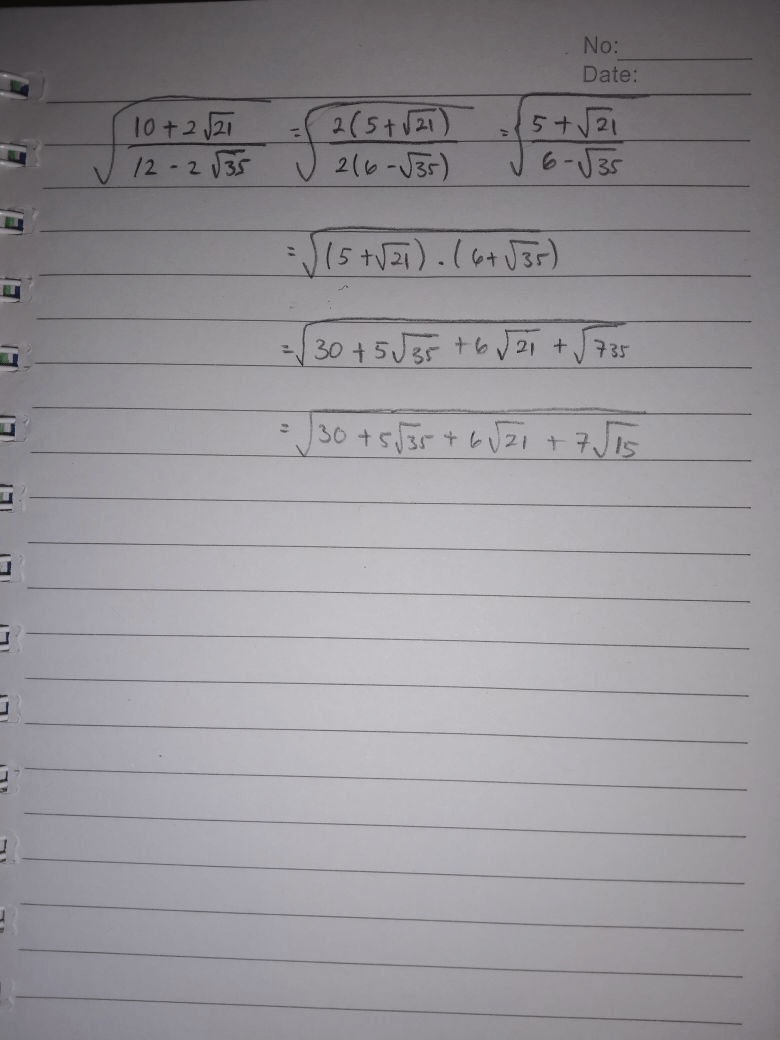 No:
Date:
√((10 + 2√21)/(12 - 2√35)) = √((2(5 + √21))/(2(6 - √35))) = √((5 + √21)/(6 - √35))
= √((5 + √21) . (6 + √35))
= √(30 + 5√35 + 6√21 + √735)
= √(30 + 5√35 + 6√21 + 7√15)